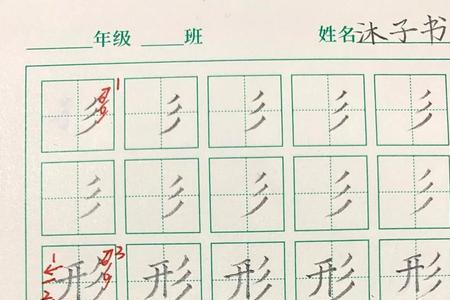 年级 班 姓名 沐子书
1 彡 彡 彡 彡 彡
彡 彡 彡 彡 彡
1 2 3 形 形 形 形 形